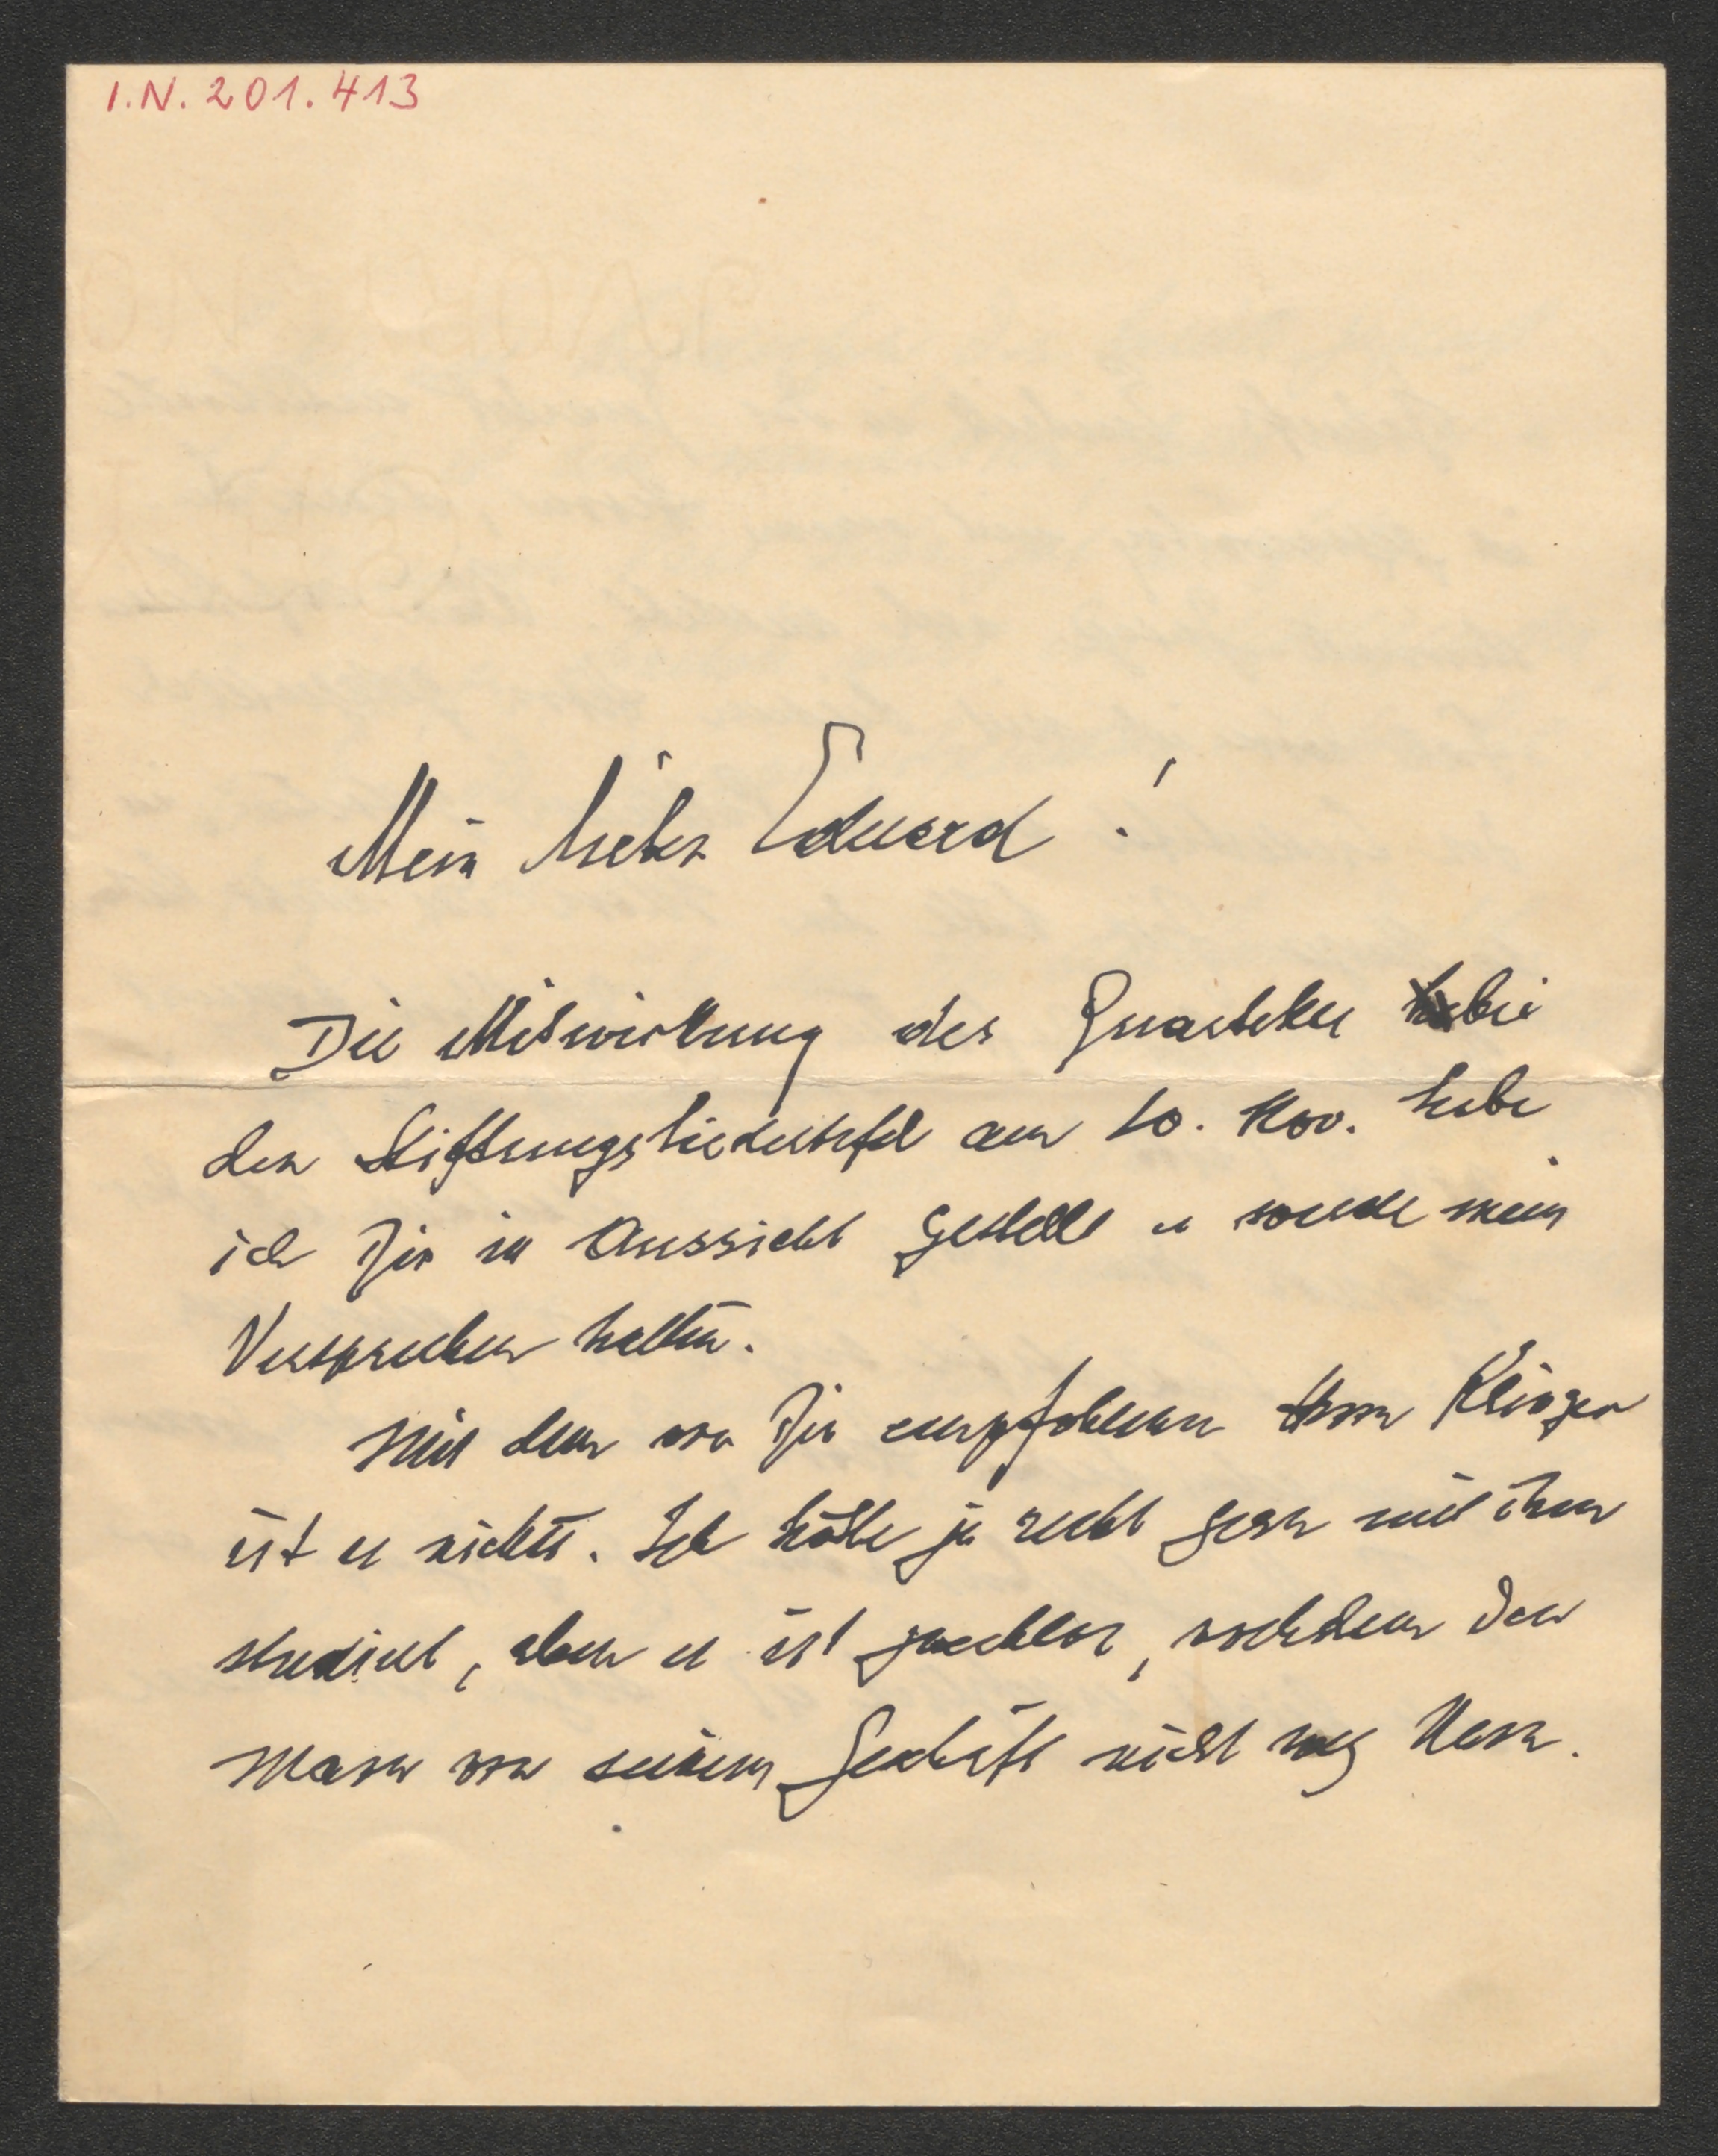 I.N. 201.413
Mein lieber Eduard!
Die Mitwirkung des Quartettes bei
der Stiftungsliedertafel am 10. Nov. habe
ich Dir in Aussicht gestellt u werde mein
Versprechen halten.
Mit dem von Dir empfohlenen Herrn Klinger
ist es nichts. Ich hätte ja recht gern mit ihm
studiert, aber es ist zwecklos, nachdem der
Mann von seinem Geschäft nicht weg kann.